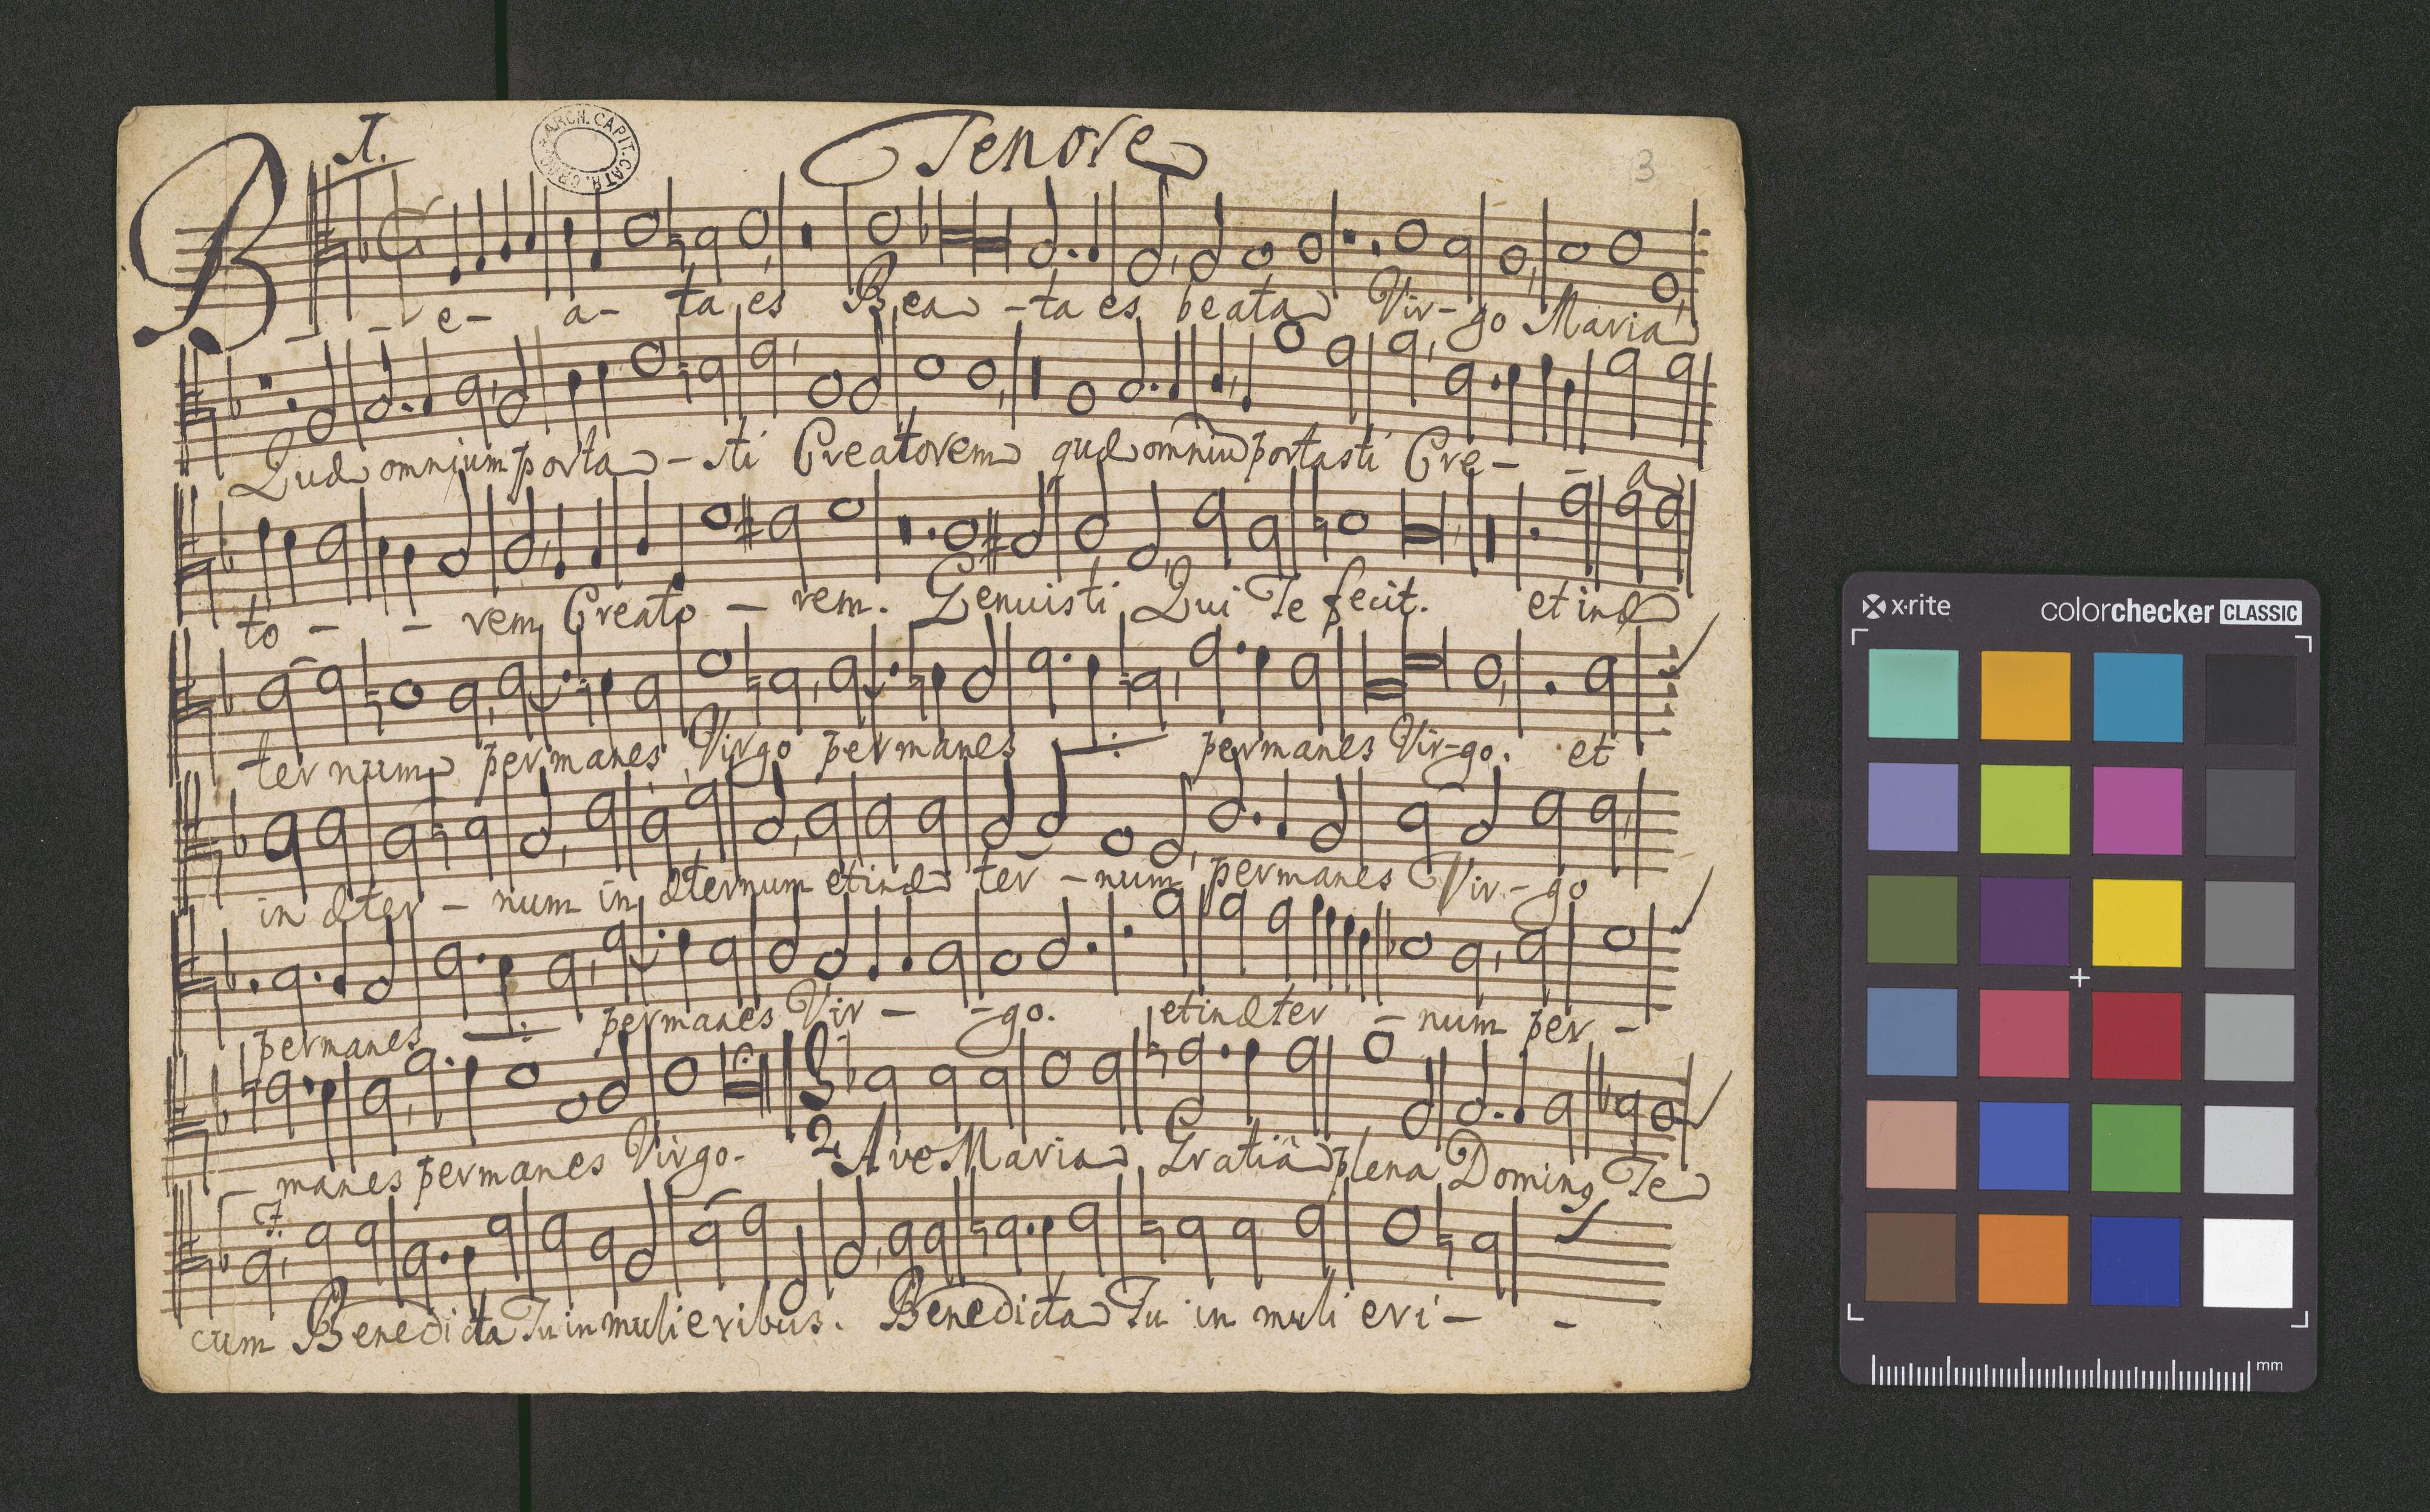 I. Tenore 3
ARCH. CAPIT. CATH. CRAC.
B - - e - a - ta es Bea - ta es beata Vir - go Maria
Quæ omnium porta - sti Creatorem quæ omniũ portasti Cre - - a
to - - rem Creato - rem. Genuisti Qui Te fecit. et inæ
ternum permanes Virgo permanes permanes Vir - go. et
in æter - num in æternum et inæ ter - num permanes Vir - go
permanes permanes Vir - - go. et inæter - num per -
manes permanes Virgo. 2 Ave Maria Gratiâ plena Dominꝰ Te
cum Benedicta Tu in mulieribus. Benedicta Tu in muli eri - -
x·rite colorchecker CLASSIC
mm